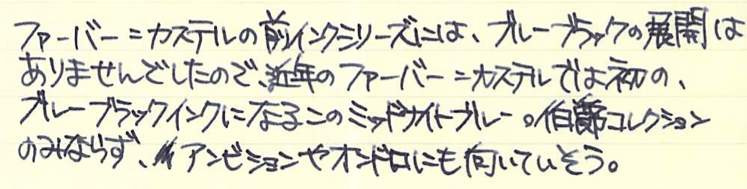 ファーバー=カステルの前インクシリーズには、ブルーブラックの展開は
ありませんでしたので、近年のファーバー=カステルでは初の、
ブルーブラックインクになるこのミッドナイトブルー。伯爵コレクション
のみならず、アンビションやオンドロにも向いていそう。